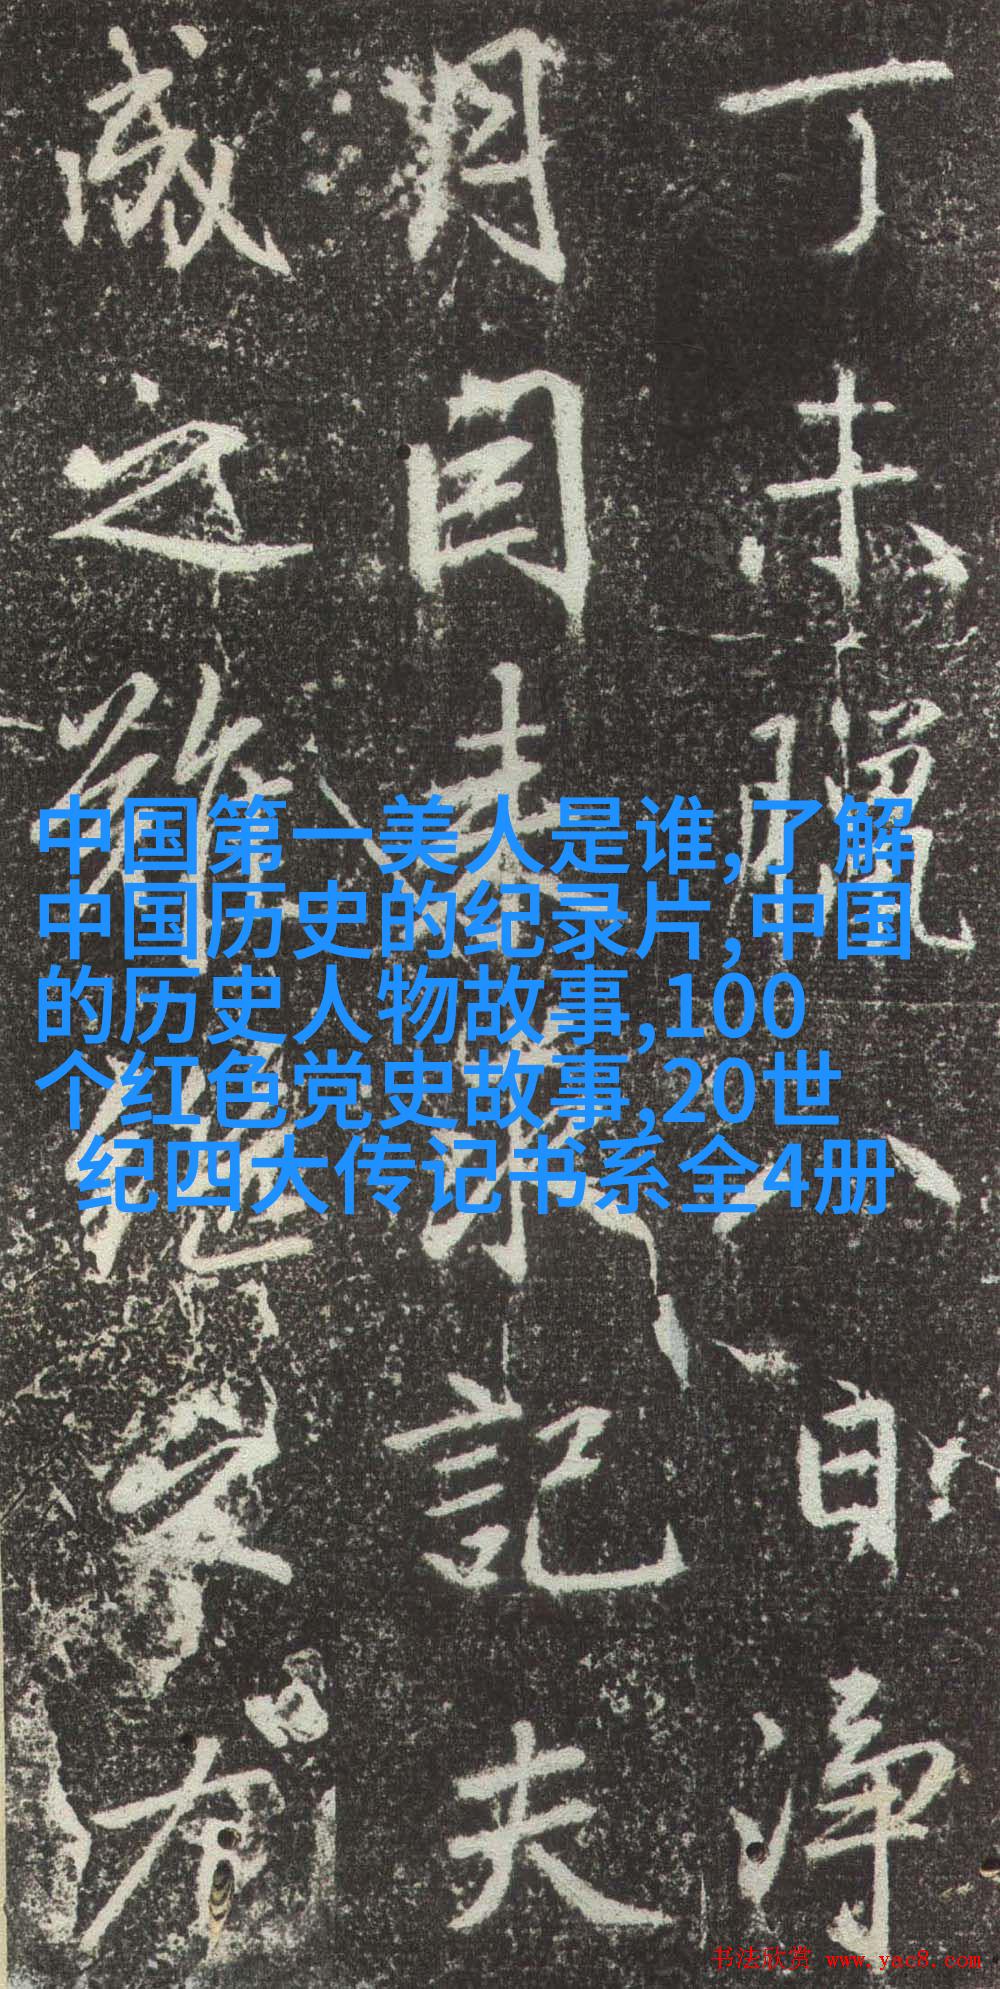 丁未臘八日淨
月因来求記夫
成之難能守
中国第一美人是谁,了解
中国历史的纪录片,中国
的历史人物故事,100
个红色党史故事,20世
纪四大传记书系全4册
书法欣赏 www.yac8.com